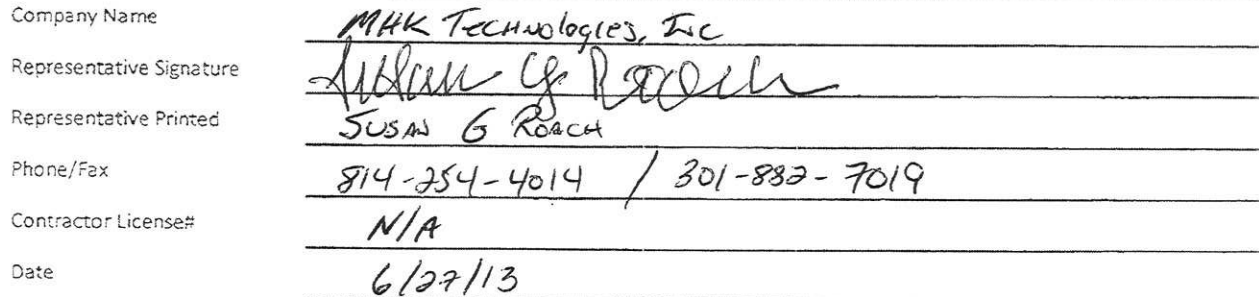 Company Name MHK Technologies, Inc
Representative Signature Susan G Roach
Representative Printed SUSAN G ROACH
Phone/Fax 814-254-4014 / 301-882-7019
Contractor License# N/A
Date 6/27/13